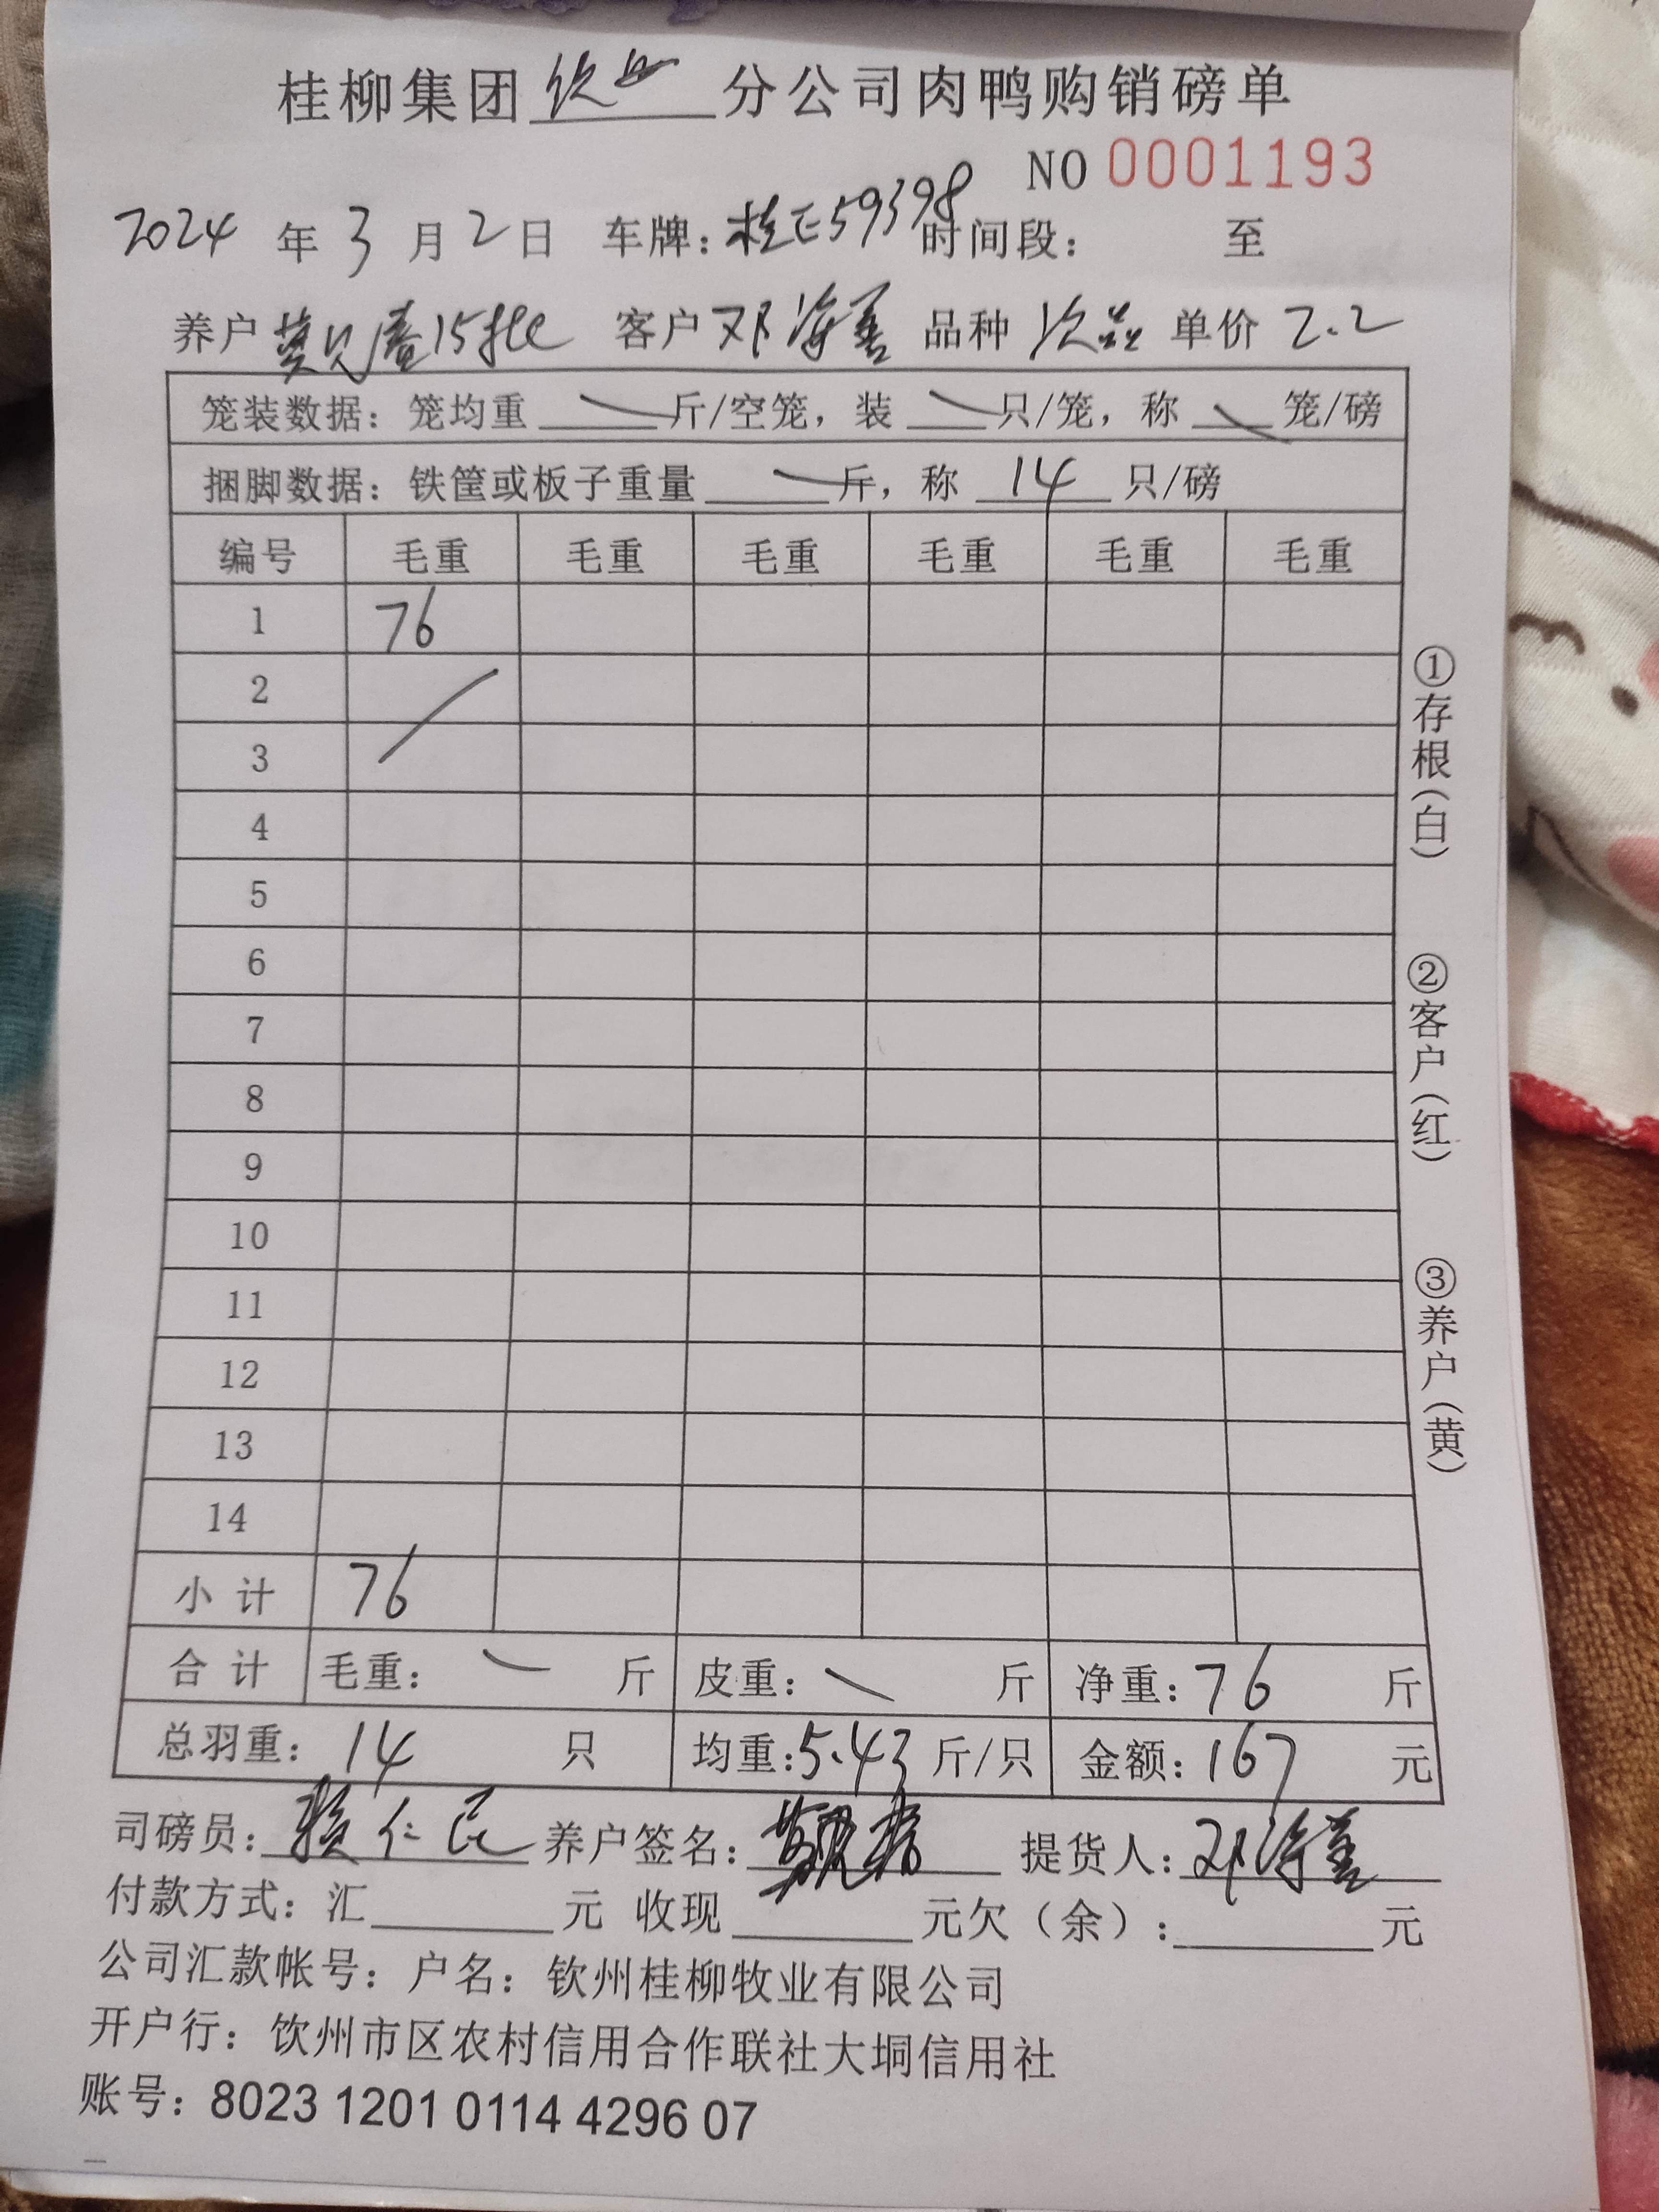 桂柳集团 钦州 分公司肉鸭购销磅单
NO 0001193
2024 年 3 月 2 日 车牌: 桂E59398 时间段: 至
养户 15批 客户 邓海善 品种 次品 单价 2.2
笼装数据: 笼均重 斤/空笼, 装 只/笼, 称 笼/磅
捆脚数据: 铁筐或板子重量 斤, 称 14 只/磅
编号 毛重 毛重 毛重 毛重 毛重 毛重
1 76
2
3
4
5
6
7
8
9
10
11
12
13
14
小计 76
合计 毛重: 斤 皮重: 斤 净重: 76 斤
总羽重: 14 只 均重: 5.43 斤/只 金额: 167 元
司磅员: 仁民 养户签名: 提货人: 邓海善
付款方式: 汇 元 收现 元欠(余): 元
公司汇款帐号: 户名: 钦州桂柳牧业有限公司
开户行: 钦州市区农村信用合作联社大垌信用社
账号: 8023 1201 0114 4296 07
①存根(白)
②客户(红)
③养户(黄)